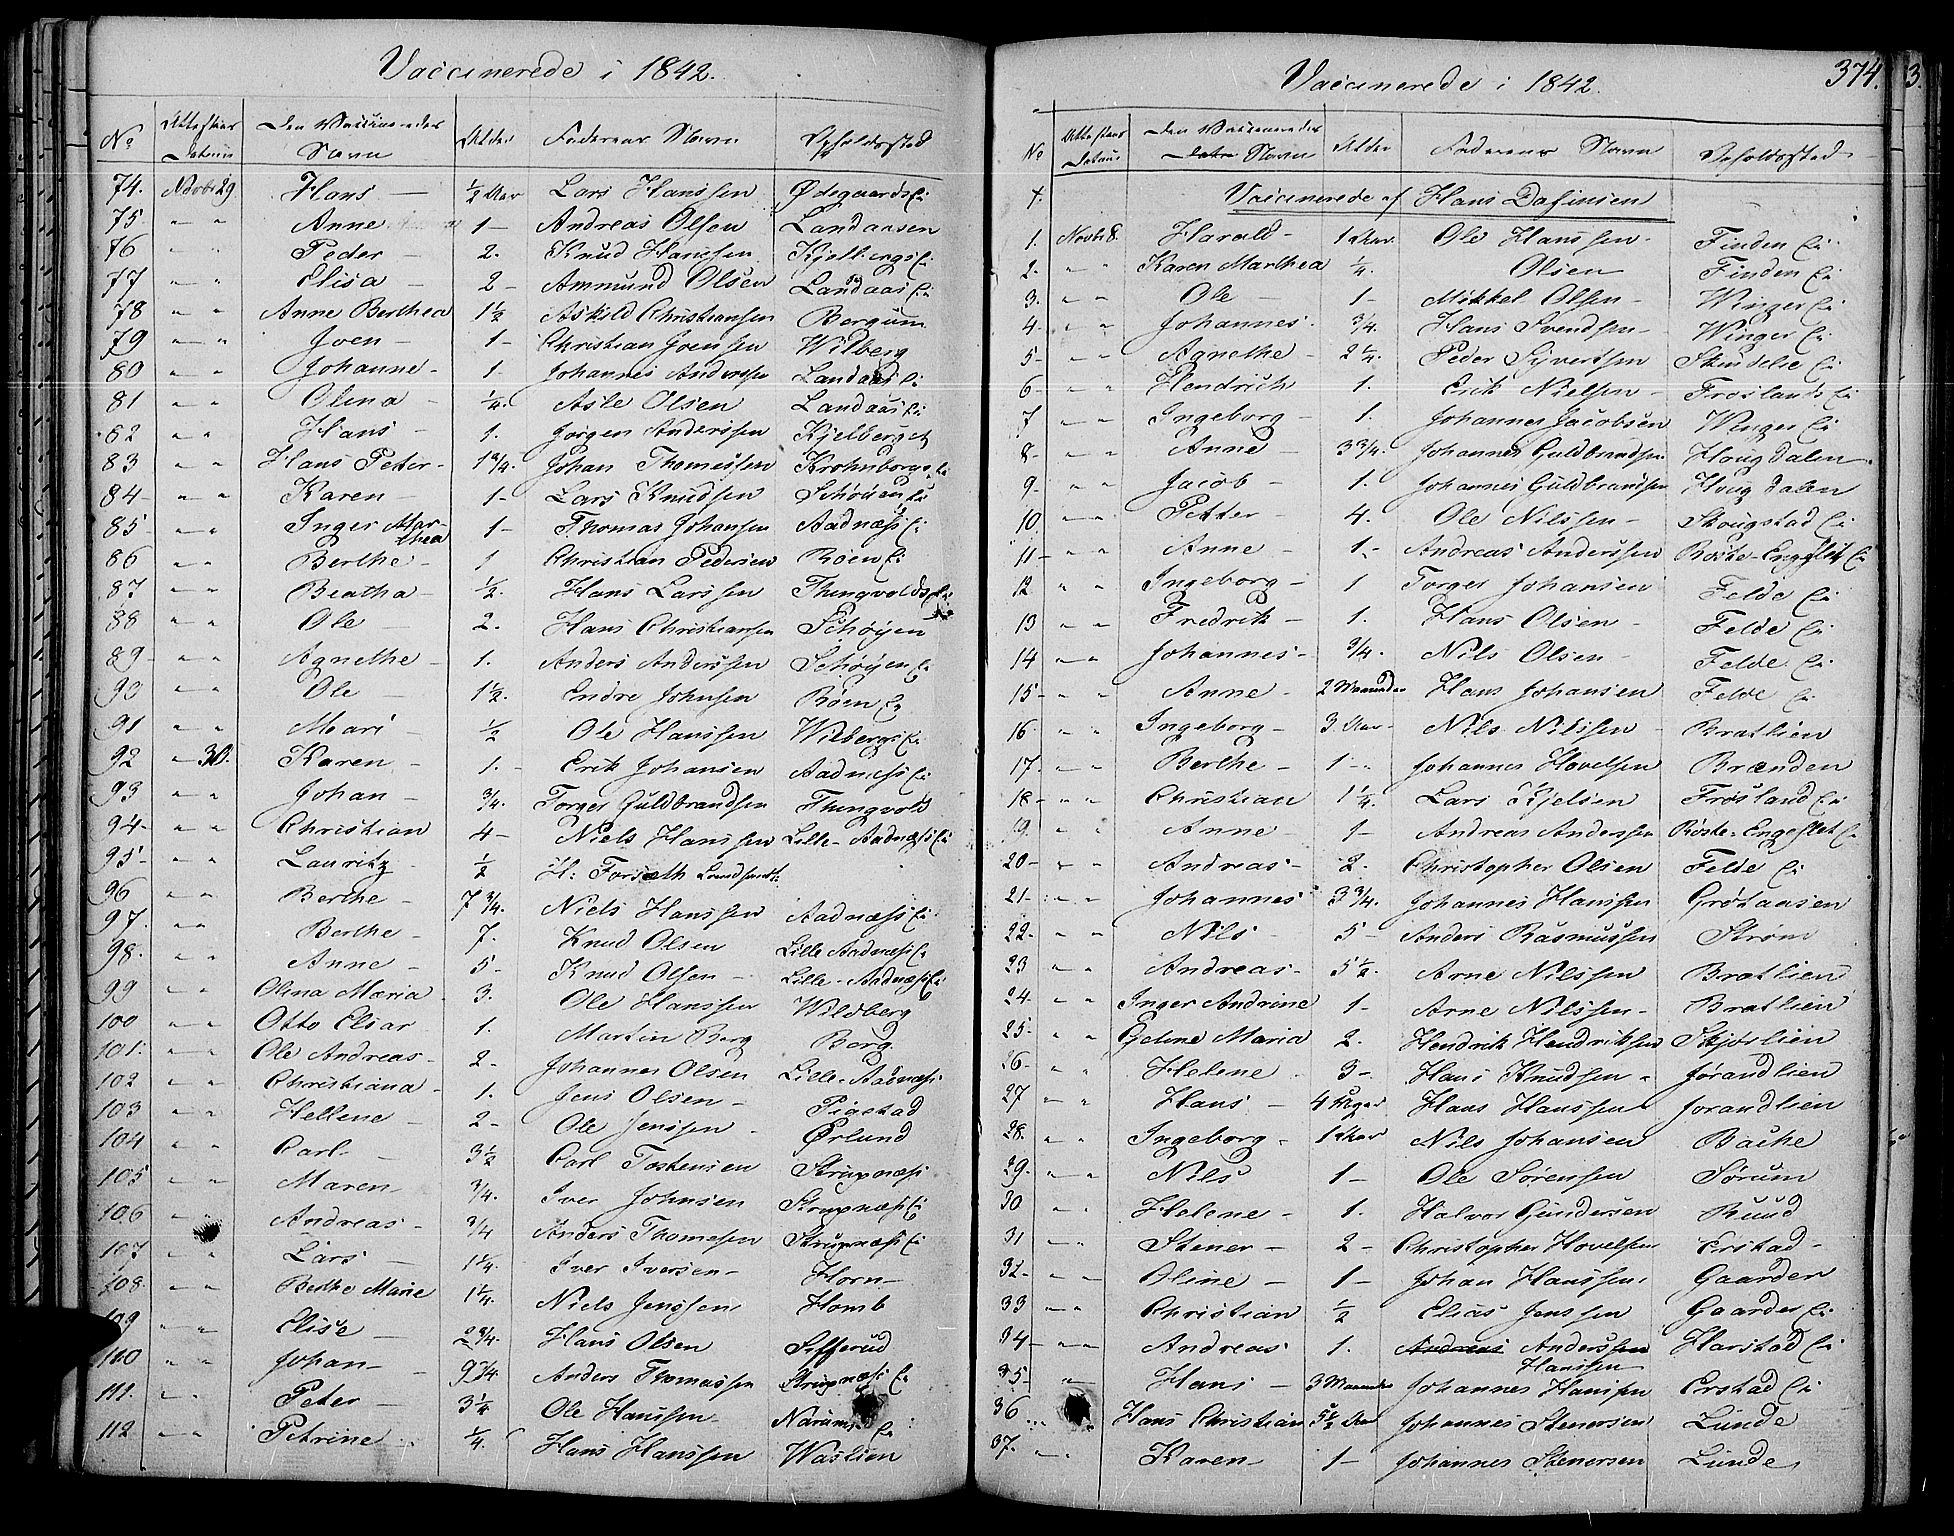 Vaccinerede i 1842.
No Attesternes Datum Den Vaccineredes Navn Alder Fædrenes Navn Opholdssted
74. Novbr 29 Hans — ½ Aar Lars Hanssen Ødegaards Ei
75 " " Anne 1 — Andreas Olsen Landaasen
76 " " Peder — 2. Knud Hanssen Kjelbergs Ei
77 " " Elisa — 2 - Ammund Olsen Landaas Ei
78 " " Anne Berthea 1½ Askild Christiansen Bergum
79 " " Joen — 1 - Christian Joensen Wilberg
80 " " Johanne - 1. Johannes Anderssen Landaas Ei
81 " " Olina — ¼. Asle Olsen Landaas Ei
82 " " Hans - 1. Jørgen Anderssen Kjelberget
83 " " Hans Peter - 1¾. Johan Thomessen Krohnborgs Ei
84 - " " Karen — 1 - Lars Knudsen Schøyen Ei
85 - " " Inger Marthea 1 - Thomas Johansen Aadnæss Ei
86 " " Berthe - 1 Christian Pedersen Roen Ei
87 " " Beatha - ½. Hans Larssen Thingvolds Ei
88 " " Ole — 2. Hans Christiansen Schøyen
89 - " " Agnethe - 1. Anders Anderssen Schøyen Ei
90 " " Ole — 1½. Endre Johnsen Röen Ei
91 " " Mari — ½ Ole Hanssen Wilbergs Ei
92 " 30. Karen - 1. - Erik Johansen Aadnæss Ei
93 " " Johan - ¾. Torger Guldbrandsen Thingvold
94 - " " Christian 4 - Niels Hanssen Lille-Aadnæss Ei
95 - " " Lauritz ½ H: Forsæth
96 " " Berthe - 7¾. Niels Hanssen Aadnæss Ei
97. " " Berthe - 7. Knud Olsen Lille Aadnæss Ei
98. " " Anne - 5 - Knud Olsen - Lille-Aadnæss Ei
99 " " Olina Maria 3. Ole Hanssen Wildberg
100 " " Otto Elsar 1. Martin Berg Berg
101. " " Ole Andreas - 2 - Johannes Olsen Lille-Aadnæss
102 " " Christiana - 1. Jens Olsen - Pigstad
103 " " Hellene — 2 - Ole Jenssen - Ørlund
104 " " Carl — 3½ Carl Tostensen Strupnæss
105 " " Maren ¾. Iver Johnsen Strupnæss Ei
106 " " Andreas - ¾ Anders Thomesen Strupnæss Ei
107 " " Lars — 1¼. Iver Iversen - Horn -
108. " " Berthe Marie 1¼. Niels Jenssen Homb
109 " " Elise — 2¾. Hans Olsen Sifferud
110 " " Johan — 9¾. Anders Thomassen Strupnæss Ei
111. " " Peter — 3¼ Ole Hanssen Narum Ei
112 " " Petrine ¼. Hans Hanssen Waslien
Vaccinerede i 1842. 374.
No Attesternes Datum Den Vaccineredes Navn Alder Fædrenes Navn Opholdssted
Vaccinerede af Hans Dafinsen
1. Novbr 8. Harald - 1 Aar. Ole Hanssen - Finden Ei
2. " " Karen Marthea ¼. Olsen Finden Ei
3. " " Ole — 1 - Mikkel Olsen - Winger Ei
4. " " Johannes - ¾. Hans Svendsen - Winger Ei
5 - " " Agnethe - 2¼. Peder Syvertsen Skindelie Ei
6 - " " Hendrich 1. Erik Nielsen - Frøslands Ei
7 " " Ingeborg - 1. Johannes Jacobsen Winger Ei
8 - " " Anne — 3¾. Johannes Guldbrandsen Hougdalen
9 - " " Jacob - 1. Johannes Guldbrandsen Hougdalen
10 " " Petter 4. Ole Nilssen - Skougstad Ei
11 - " " Anne - 1 - Andreas Anderssen Roste-Engeslet Ei
12 " " Ingeborg - 1 Torger Johansen Felde Ei
13 " " Fredrik - 1. Hans Olsen - Felde Ei
14 " " Johannes - ¾. Nils Olsen Felde Ei
15 - " " Anne - 2 Maaneder Hans Johansen Felde Ei
16 - " " Ingeborg - 3 Aar - Nils Nilssen - Bratlien
17. " " Berthe - 1 - Johannes Hovelsen Brænden
18 - " " Christian 1¼. Lars Kjelsen Frøsland Ei
19. " " Anne - 1 - Andreas Anderssen Röste-Engeslet Ei
20 - " " Andreas - 2. Christopher Olsen Felde Ei
21 - " " Johannes 3¾. Johannes Hanssen Grøtaasen
22. " " Nils - 5 Anders Rasmussen Strøm
23 " " Andreas - 5½. Arne Nilssen Brætlien
24. " " Inger Andrine 1 - Arne Nilssen - Bratlien
25 - " " Gelene Maria 2. Hendrik Hendriksen Skjørlien
26 - " " Helene 3 - Hans Knudsen - Jørandlien
27 " " Hans — 4 Uger Hans Hanssen Jorandlien
28. " " Ingeborg - 1 Aar Nils Johansen Bache
29. " " Nils 1 - Ole Sørensen Sørum
30 " " Helene - 1. Halvor Gundersen Ruud
31 " " Stener - 2 - Christopher Hovelsen Erstad -
32 - " " Oline — 1 - Johan Hanssen Gaarder
33 " " Christian ½ Elias Jenssen Gaarder Ei
34 - " " Andreas 1. Andreas Anderssen Hanssen Harstad Ei
35 - " Hans — 3 Maaneder Johannes Hanssen Erstad Ei
36 " " Hans Christian 5½ Aar Johannes Stenersen Lunde
37. " " Karen - 1 - Johannes Stenersen Lunde